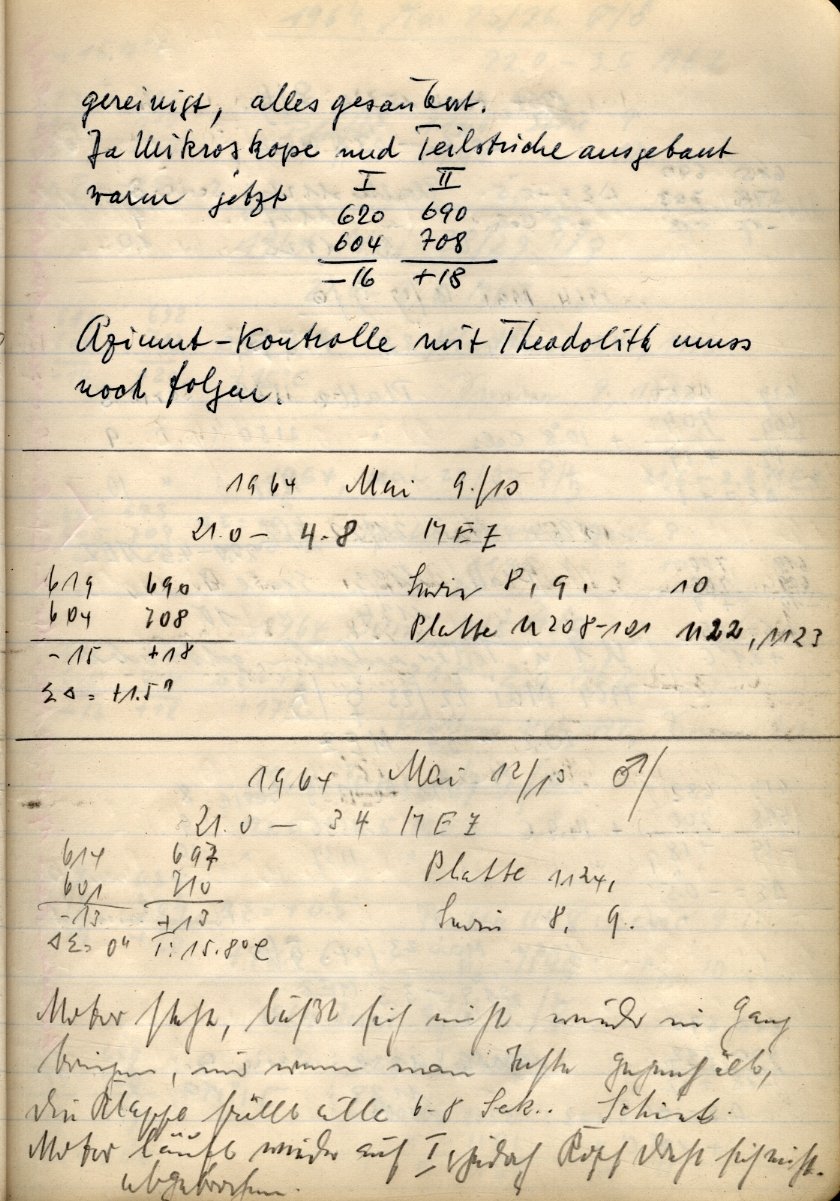 gereinigt, alles gesäubert.
Da Mikroskope und Teilstriche ausgebaut
waren jetzt I II
620 690
604 708
-16 +18
Azimut-Kontrolle mit Theodolith muss
noch folgen.
1964 Mai 9./10
21.0 - 4.8 MEZ
619 690 Serie 8, 9, 10
604 708 Platte 1122, 1123
-15 +18
ΣΔ = +1.5"
1964 Mai 12/13 ♂/
21.0 - 3.4 MEZ
614 697 Platte 1124,
601 710
-13 +13 Serie 8, 9.
ΔΣ = 0" T: 15.8° C
Motor steht, läßt sich nicht wieder in Gang
bringen, nur wenn man
die Klappe fällt alle 6-8 Sek..
Motor läuft wieder auf I, jedoch Kopf dreht sich nicht.
abgebrochen.